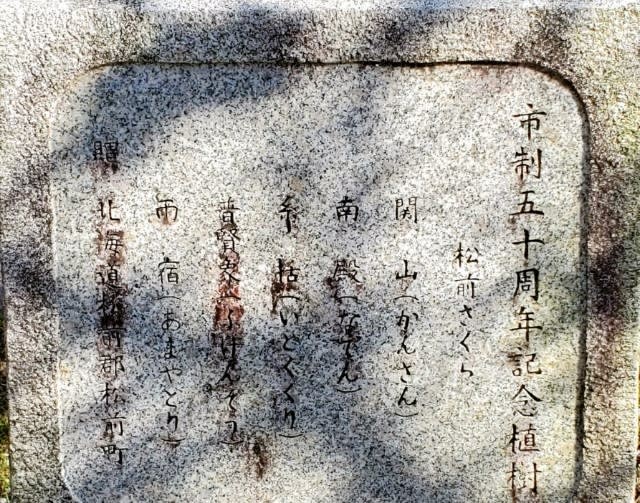 市制五十周年記念植樹
松前さくら
関山(かんざん)
南殿(なでん)
糸括(いとくくり)
普賢象(ふげんぞう)
雨宿(あまやどり)
贈 北海道松前郡松前町